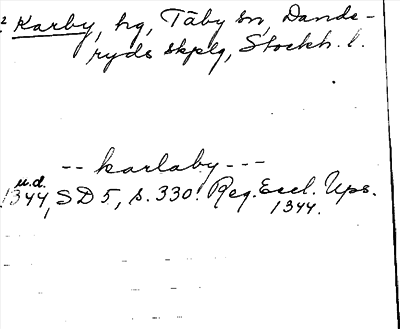 2 Karby, hg, Täby sn, Dande-
ryds skplg, Stockh. l.
-- karlaby ---
u.d.
1344, SD 5, s. 330. Reg. Eccl. Ups.
1344.